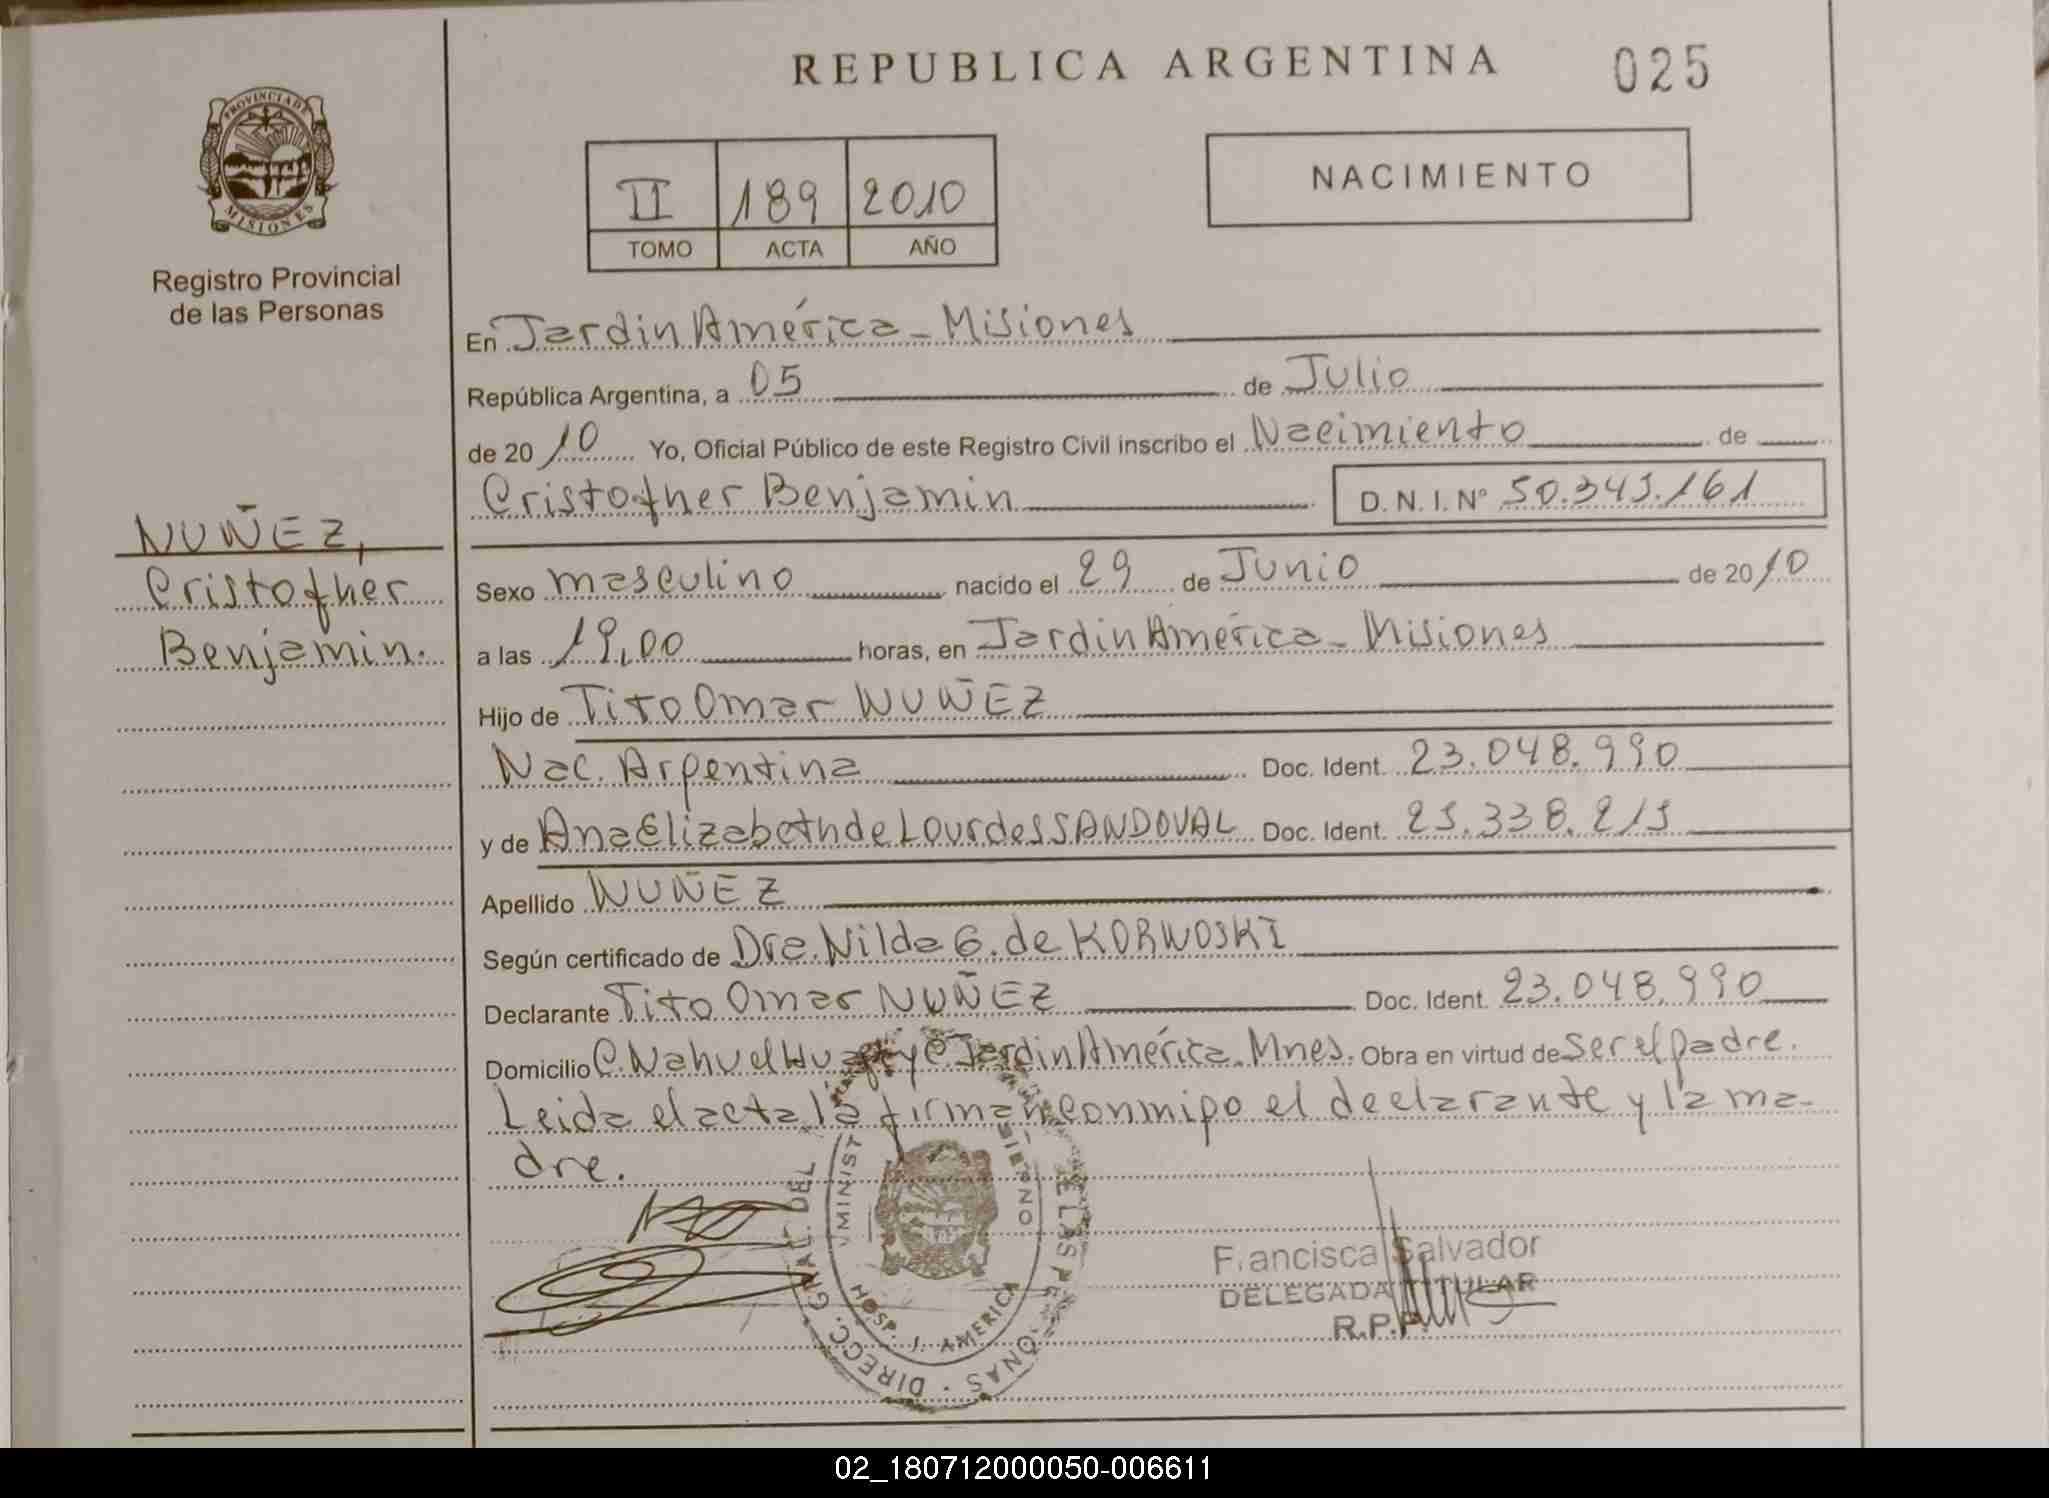 REPUBLICA ARGENTINA
025
PROVINCIA DE
MISIONES
Registro Provincial
de las Personas
II 189 2010
TOMO ACTA AÑO
NACIMIENTO
En Jardin América - Misiones
República Argentina, a 05 de Julio
de 2010 Yo, Oficial Público de este Registro Civil inscribo el Nacimiento de
Cristofher Benjamin D.N.I. N° 50.343.161
NUÑEZ,
Cristofher
Benjamin.
Sexo masculino nacido el 29 de Junio de 2010
a las 19,00 horas, en Jardin América - Misiones
Hijo de Tito Omar NUÑEZ
Nac. Argentina Doc. Ident. 23.048.990
y de Ana Elizabeth de Lourdes SANDOVAL Doc. Ident. 25.338.215
Apellido NUÑEZ
Según certificado de Dra. Nilda G. de KORWOSKI
Declarante Tito Omar NUÑEZ Doc. Ident. 23.048.990
Domicilio C. Nahuel Huapi y C. Jardin América. Mnes. Obra en virtud de ser el padre.
Leida el acta la firman conmigo el declarante y la ma-
dre.
DIRECC. GRAL. DEL
HOSP. J. AMERICA
Francisca Salvador
DELEGADA TITULAR
R.P.P.
02_180712000050-006611